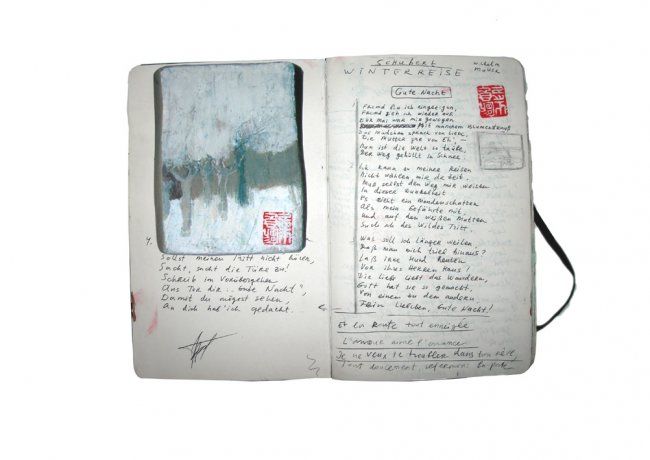 4.
Sollst meinen Tritt nicht hören,
Sacht, sacht die Türe zu!
Schreib im Vorübergehen
Ans Tor dir: "Gute Nacht",
Damit du mögest sehen,
An dich hab' ich gedacht.
SCHUBERT
WINTERREISE
Wilhelm
Müller
GUTE NACHT
Fremd bin ich eingezogen,
Fremd zieh ich wieder aus
Der Mai war mir gewogen
Mit manchem Blumenstrauß
Das Mädchen sprach von Liebe,
Die Mutter gar von Eh', —
Nun ist die Welt so trübe,
Der Weg gehüllt in Schnee.
Ich kann zu meiner Reisen
Nicht wählen mit der Zeit.
Muß selbst den Weg mir weisen
In dieser Dunkelheit
Es zieht ein Mondenschatten
Als mein Gefährte mit,
Und auf den weißen Matten
Such ich des Wildes Tritt
Was soll ich länger weilen
Daß man mich trieb hinaus?
Laß irre Hund heulen
Vor ihres Herren Haus!
Die Liebe liebt das Wandern,
Gott hat sie so gemacht,
Von einem zu dem andern.
Fein Liebchen, Gute Nacht!
Et la route tout enneigée
L'amour aime l'errance
Je ne veux te troubler dans ton rêve
Tout doucement, refermons la porte